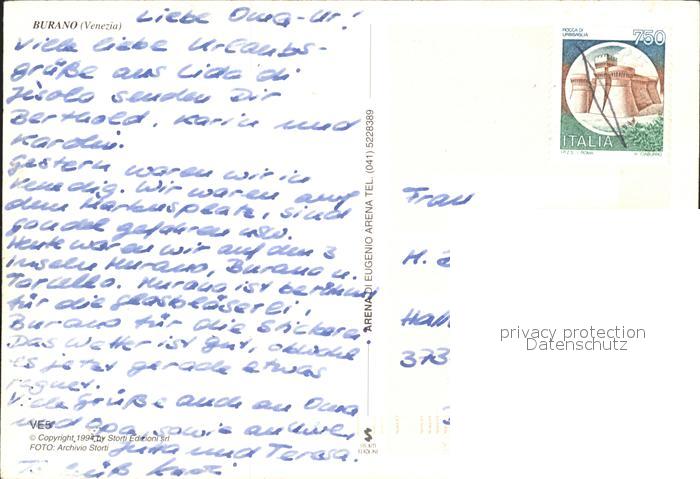 BURANO (Venezia)
Liebe Oma-Ur!
Viele liebe Urlaubs-
grüße aus Lido di
Jesolo senden Dir
Berthold, Karin und
Karolin.
Gestern waren wir in
Venedig. Wir waren auf
dem Markusplatz, sind
Gondel gefahren usw.
Heute waren wir auf den 3
Inseln Murano, Burano u.
Torcello. Murano ist berühmt
für die Glasbläserei,
Burano für die Stickerei.
Das Wetter ist gut, obwohl
es jetzt gerade etwas
regnet.
Viele Grüße auch an Oma
und Opa, sowie an
Jutta und Teresa.
VE5
© Copyright 1994 by Storti Edizioni srl
FOTO: Archivio Storti
ARENA DI EUGENIO ARENA TEL. (041) 5228389
STORTI
EDIZIONI
ROCCA DI
URBISAGLIA
750
ITALIA
I.P.Z.S. - ROMA
Frau
H.
373
privacy protection
Datenschutz